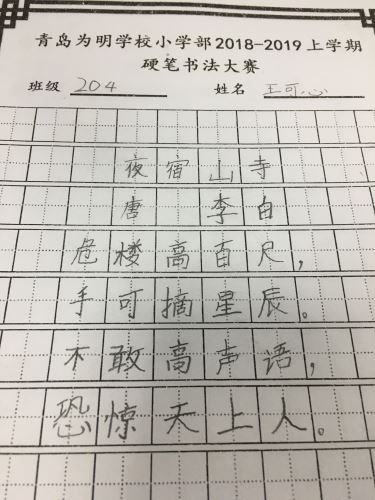 青岛为明学校小学部2018-2019上学期
硬笔书法大赛
班级 204 姓名 王可心
夜宿山寺
唐 李白
危楼高百尺，
手可摘星辰。
不敢高声语，
恐惊天上人。